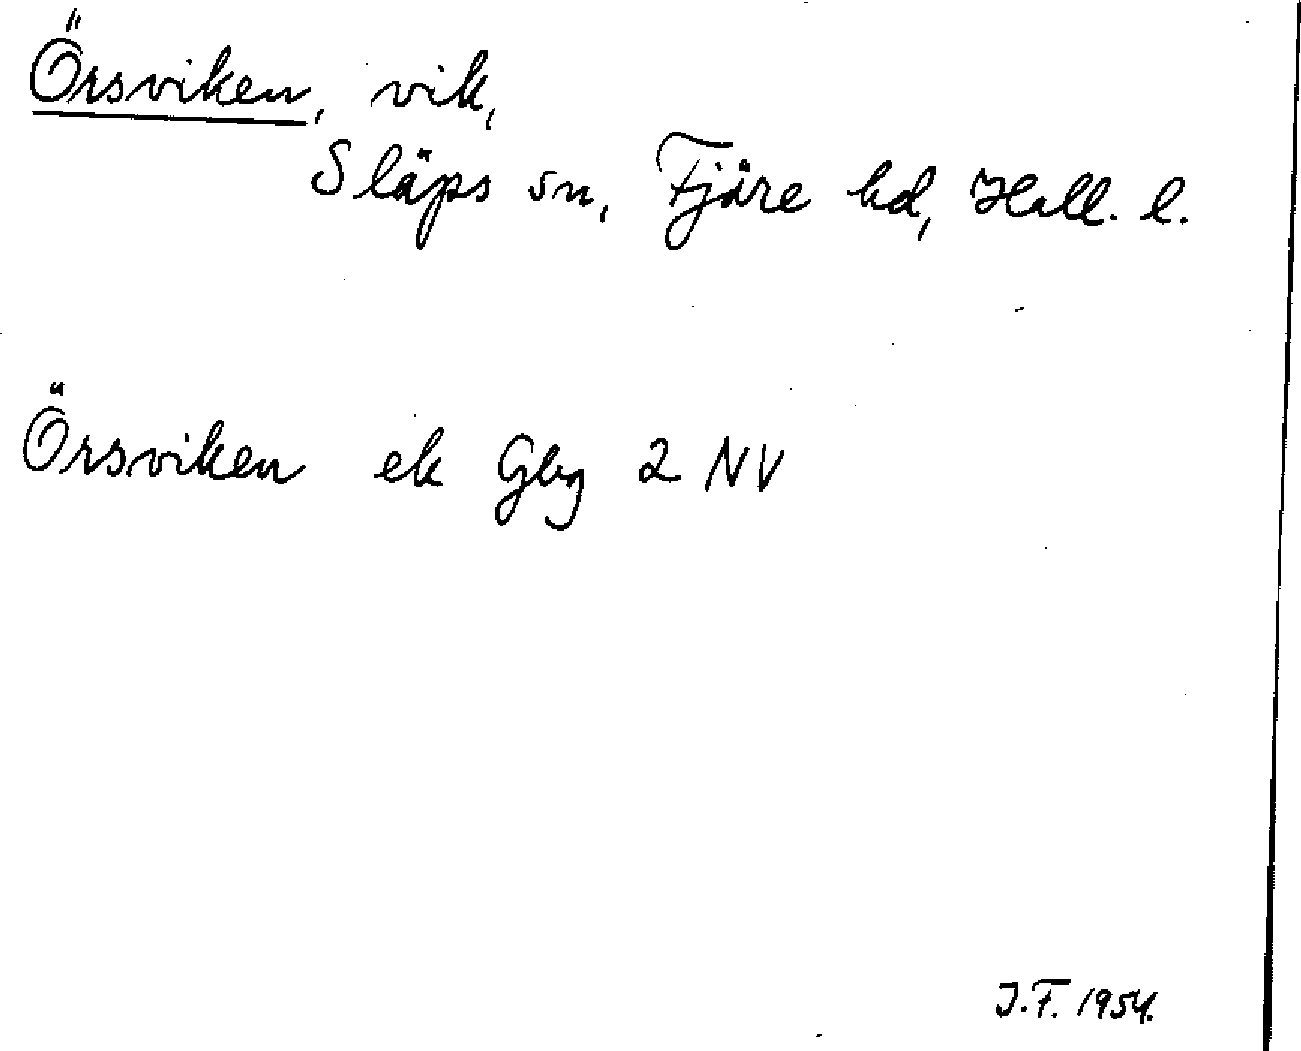 Örsviken, vik,
Släps sn, Fjäre hd, Hall. l.
Örsviken ek Gbg 2 NV
J.F. 1954.